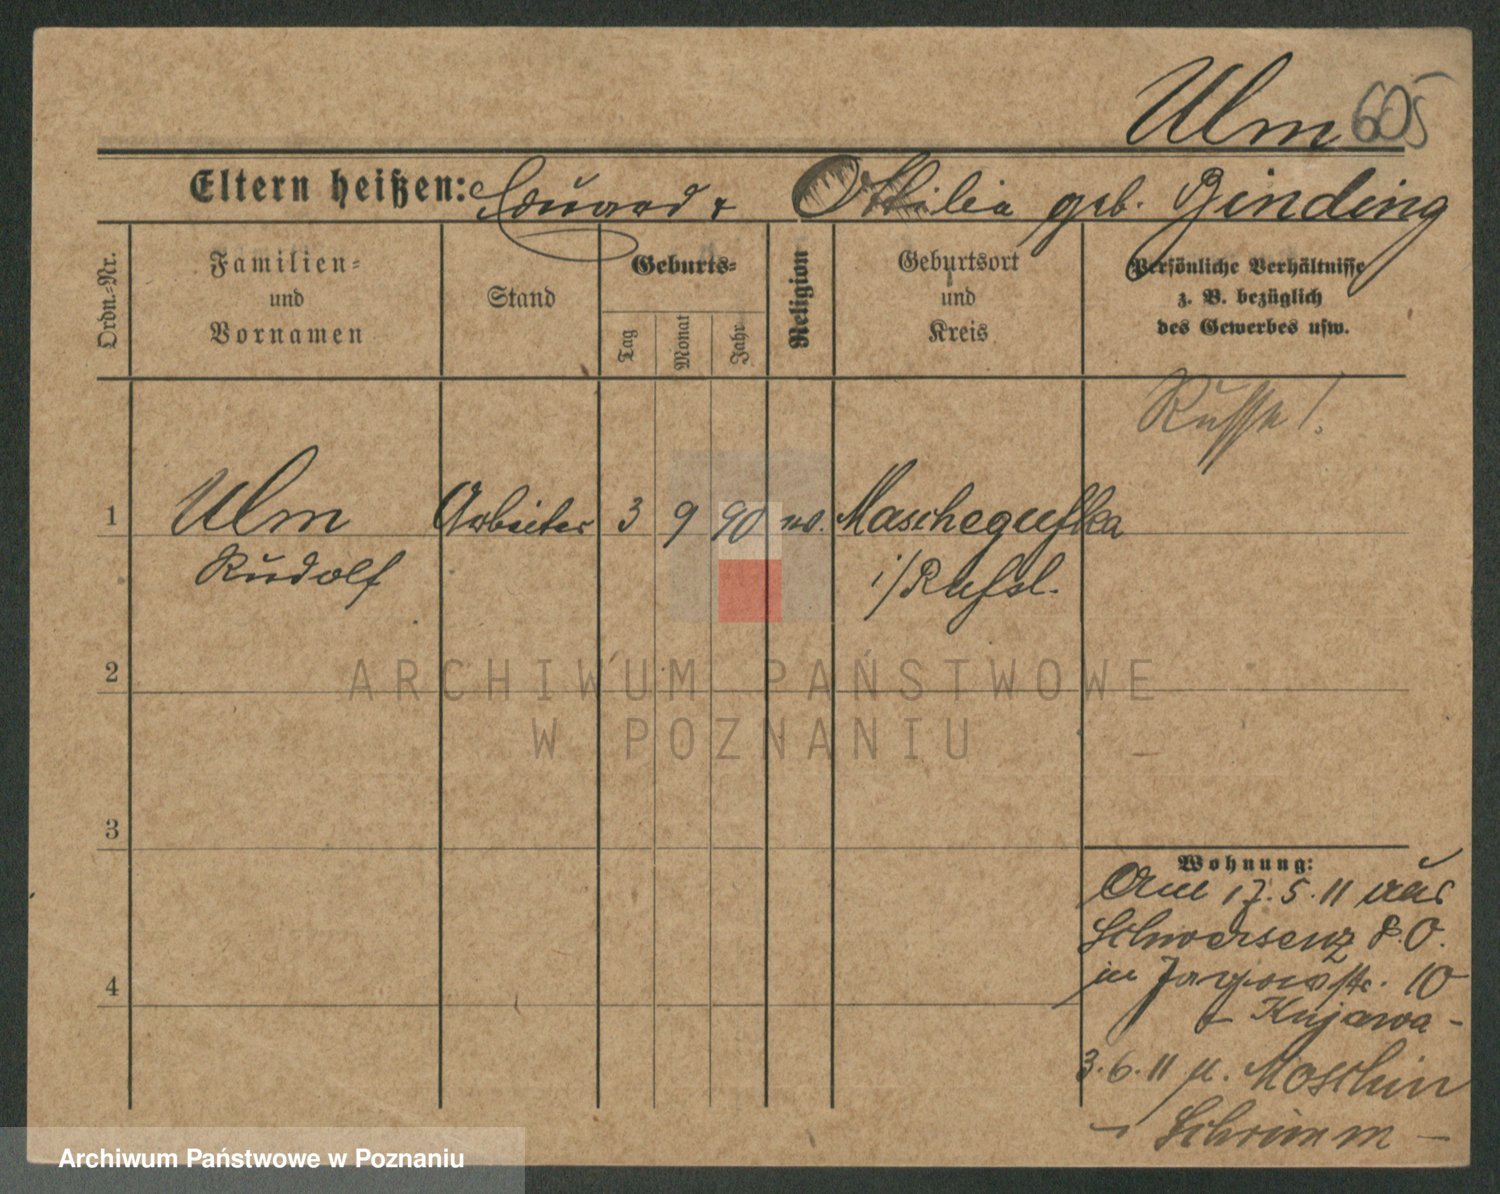 Ulm 605
Eltern heißen: Eduard & Ottilie geb. Binding
Ordn.-Nr.
Familien-
und
Vornamen
Stand
Geburts-
Tag
Monat
Jahr
Religion
Geburtsort
und
Kreis
Persönliche Verhältnisse
z. B. bezüglich
des Gewerbes usw.
Russe!
1 Ulm Arbeiter 3 9 90 ev.
Rudolf i/Rußl.
2
3
4
Wohnung:
Am 17.5.11 aus
Schwersenz P.O.
in Jagowstr. 10
- Kujawa -
3.6.11 n. Moschin
- Schrimm -
ARCHIWUM PAŃSTWOWE
W POZNANIU
Archiwum Państwowe w Poznaniu